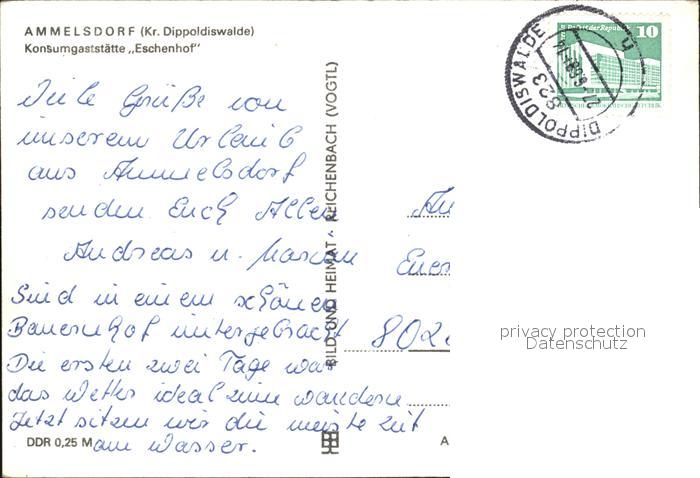 AMMELSDORF (Kr. Dippoldiswalde)
Konsumgaststätte „Eschenhof"
Viele Grüße von
unserem Urlaub
aus Ammelsdorf
senden Euch Allen
Andreas u.
Sind in einem schönen
Bauernhof untergebracht
Die ersten zwei Tage war
das Wetter ideal zum wandern.
Jetzt sitzen wir die meiste Zeit
am Wasser.
DDR 0,25 M
BILD UND HEIMAT · REICHENBACH (VOGTL)
An
802
A
DIPPOLDISWALDE
823
10
privacy protection
Datenschutz